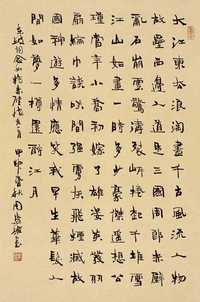 大江東去浪淘盡千古風流人物
故壘西邊人道是三國周郎赤壁
亂石崩雲驚濤裂岸捲起千堆雪
江山如畫一時多少豪傑遙想公
瑾當年小喬初嫁了雄姿英發羽
扇綸巾談笑間檣櫓灰飛煙滅故
國神遊多情應笑我早生華髮人
間如夢一樽還酹江月
東坡詞念奴嬌赤壁懷古 甲申 秋